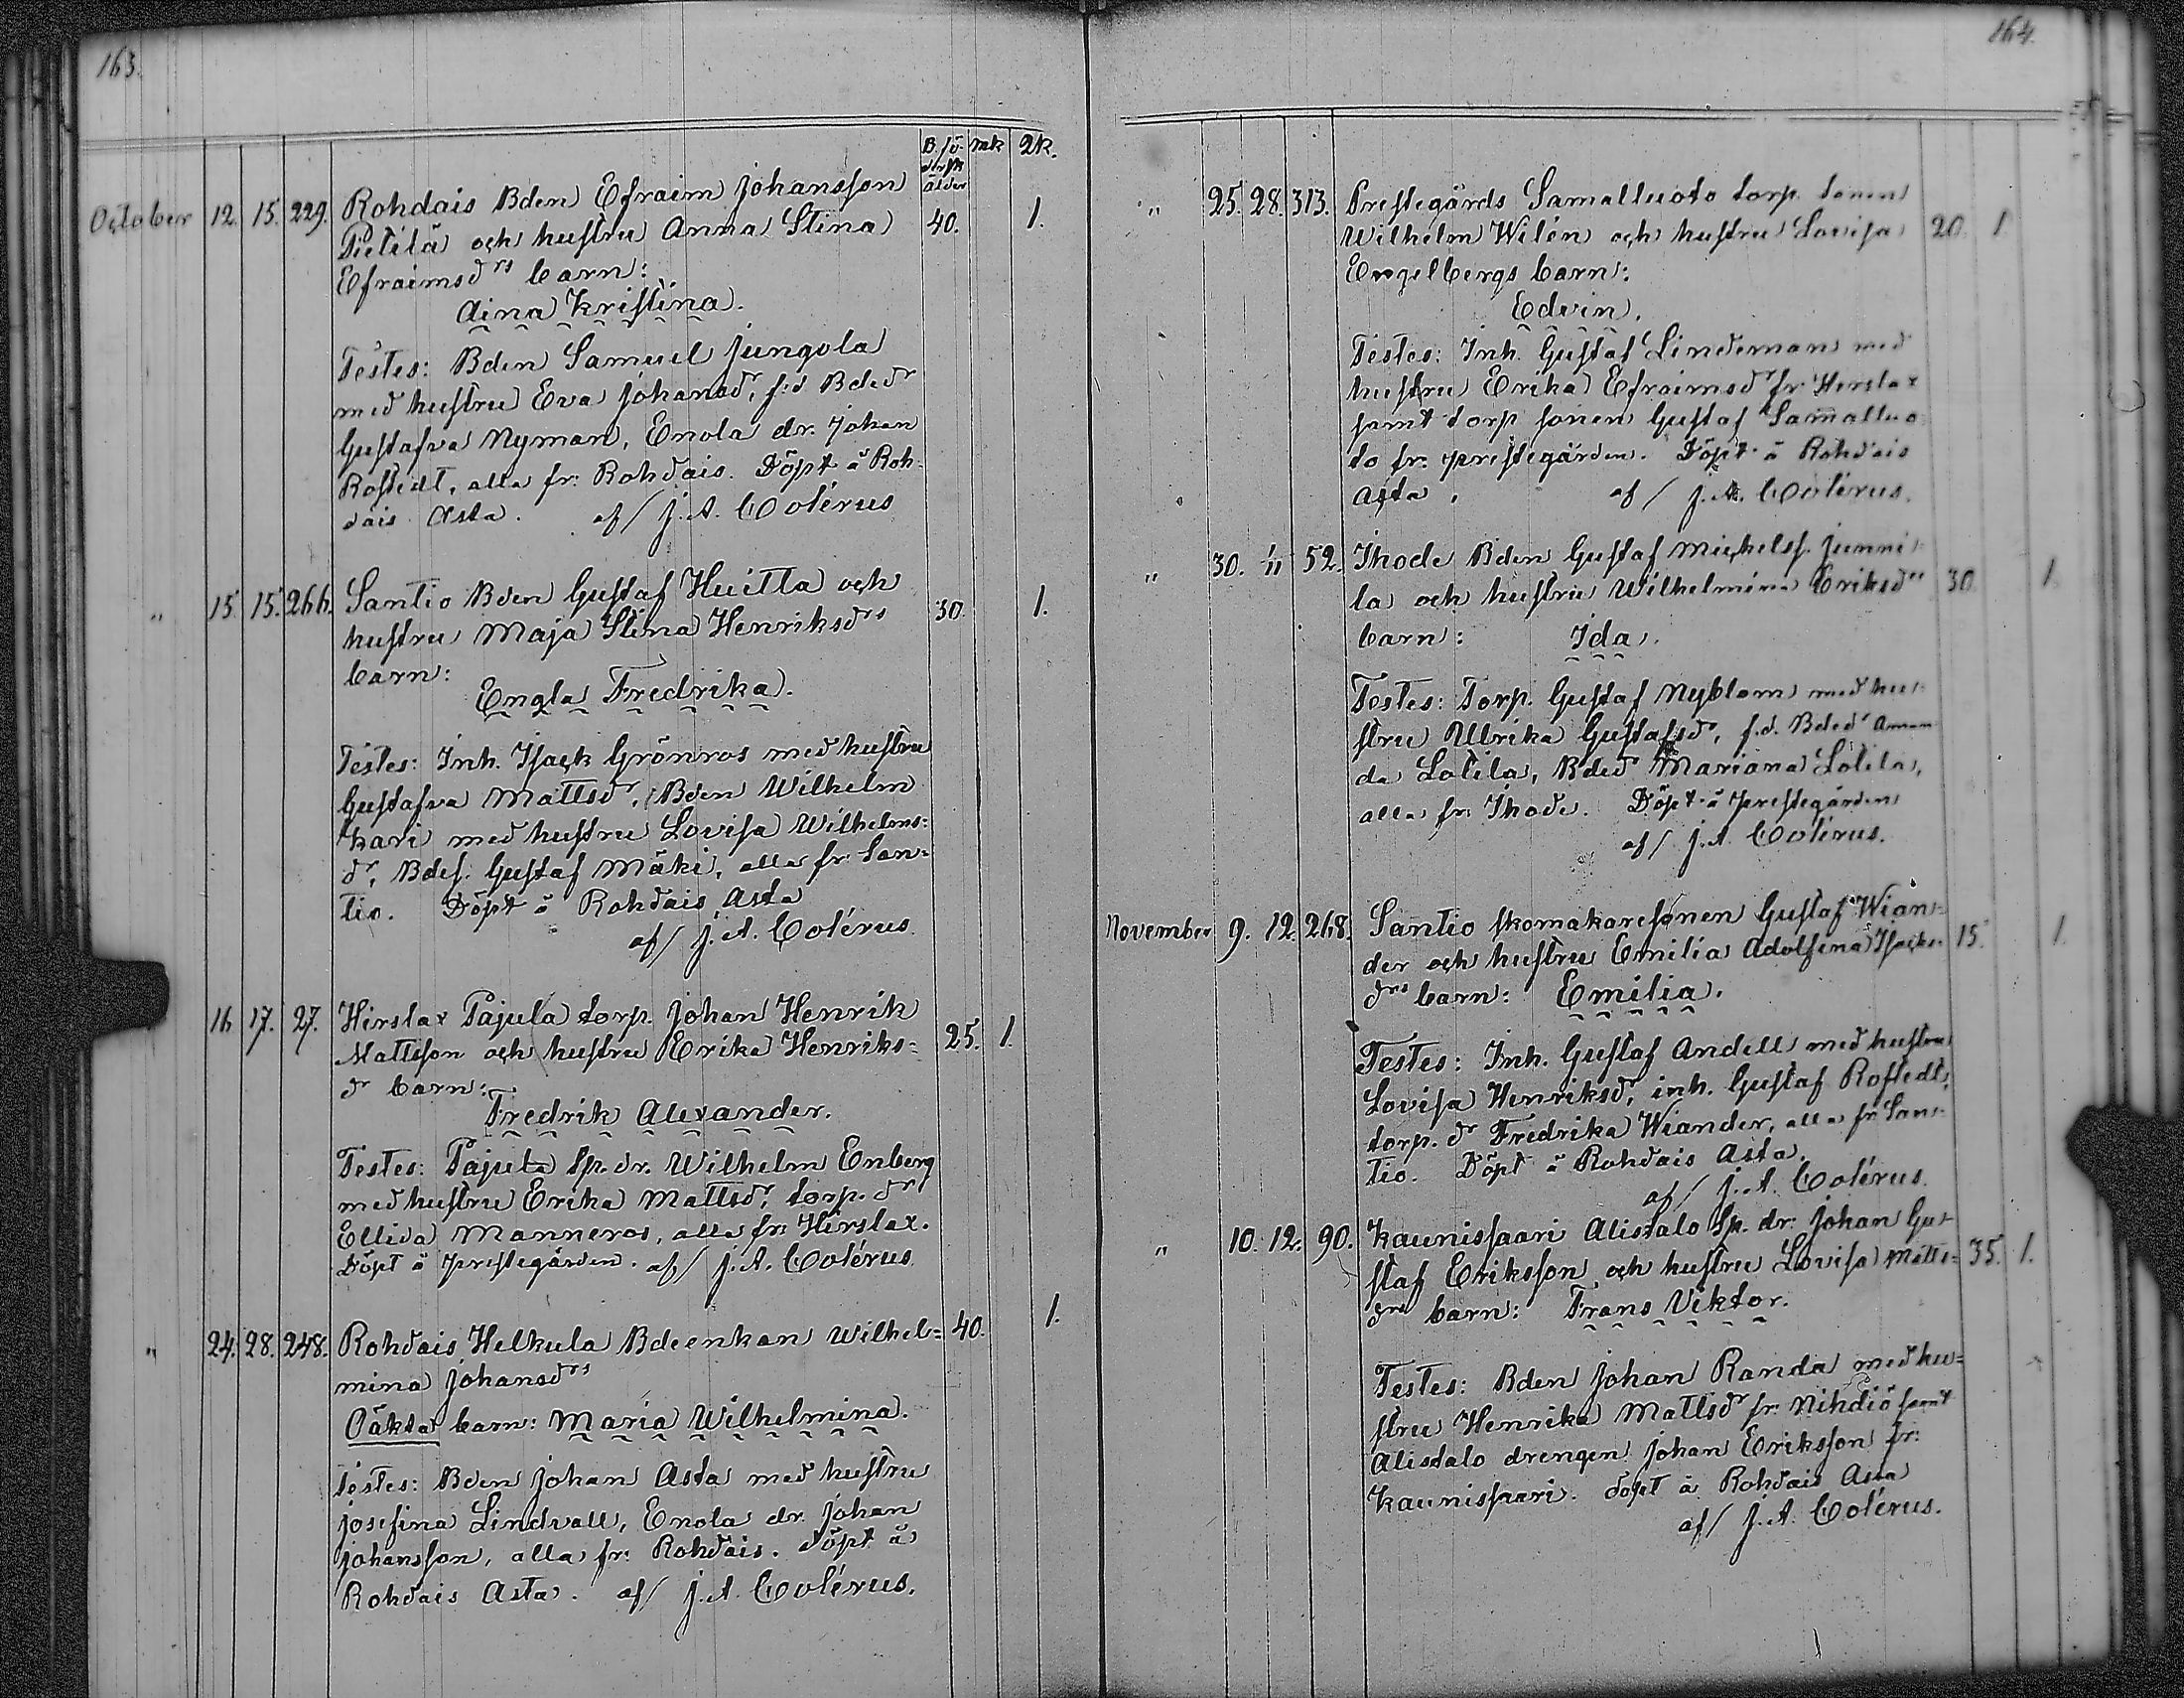 163.
B. fö- mk qk.
dersk
ålder
October 12. 15. 229. Rohdais Bden Efraim Johansson
Pietilä och hustru Anna Stina 40. 1.
Efraimsdrs barn:
Aina Kristina.
Testes: Bden Samuel Jungola
med hustru Eva Johansdr, f:d Bdedr
Gustafva Nyman, Enola dr. Johan
Rostedt, alla fr: Rohdais. Döpt å Roh-
dais Asta. af/ J. A. Colérus
" 15. 15. 266. Santio Bden Gustaf Huitta och
hustru Maja Stina Henriksdrs 30. 1.
barn:
Engla Fredrika.
Testes: Inh. Isack Grönros med hustru
Gustafva Mattsdr, Bden Wilhelm
Kari med hustru Lovisa Wilhelms=
dr, Bdes. Gustaf Mäki, alla fr: San=
tio. Döpt å Rohdais Asta
af/ J. A. Colérus.
16. 17. 27. Hirslax Pajula torp. Johan Henrik
Mattsson och hustru Erika Henriks= 25. 1.
dr barn:
Fredrik Alexander.
Testes: Pajula Sp. dr. Wilhelm Enberg
med hustru Erika Mattsdr, torp. dr
Ellida Manneros, alla fr: Hirslax.
Döpt å Prestegården. af/ J. A. Colérus.
" 24. 28. 248. Rohdais Helkula Bdeenkan Wilhel= 40. 1.
mina Johansdrs
Oäkta barn: Maria Wilhelmina.
Testes: Bden Johan Asta med hustru
Josefina Lindvall, Enola dr. Johan
Johansson, alla fr: Rohdais. Döpt å
Rohdais Asta. af/ J. A. Colérus.
164.
" 25. 28. 313. Prestegårds Samalluoto torp. sonen
Wilhelm Wilén och hustru Lovisa 20. 1.
Engelbergs barn:
Edvin.
Testes: Inh. Gustaf Lindeman med
hustru Erika Efraimsdr fr: Hirslax
samt torp sonen Gustaf Samalluo
to fr: Prestegården. Döpt å Rohdais
Asta. af/ J. A. Colérus.
" 30. 1/11 52. Ihode Bden Gustaf Michelss. Junni-
la och hustru Wilhelmina Eriksdrs 30. 1.
barn: Ida.
Testes: Torp. Gustaf Nyblom med hu-
stru Ulrika Gustafsdr, f.d. Bdedr Aman
da Lotila, Bdedr Mariana Lotila,
alla fr: Ihode. Döpt å Prestegården
af/ J. A. Colérus.
November 9. 12. 268. Santio skomakaresonen Gustaf Wian=
der och hustru Emilia Adolfina Isacks- 15. 1.
drs barn: Emilia.
Testes: Inh. Gustaf Andell med hustru
Lovisa Henriksdr, inh. Gustaf Rostedt,
torp. dr Fredrika Wiander, alla fr: San-
tio. Döpt å Rohdais Asta.
af/ J. A. Colérus.
" 10. 12. 90. Kaunissaari Alistalo Sp. dr. Johan Gu-
staf Eriksson och hustru Lovisa Matts= 35. 1.
drs barn: Frans Viktor.
Testes: Bden Johan Randa med hu=
stru Henrika Mattsdr fr: Nihdiö samt
Alistalo drengen Johan Eriksson fr:
Kaunissaari. döpt å Rohdais Asta
af/ J. A. Colérus.